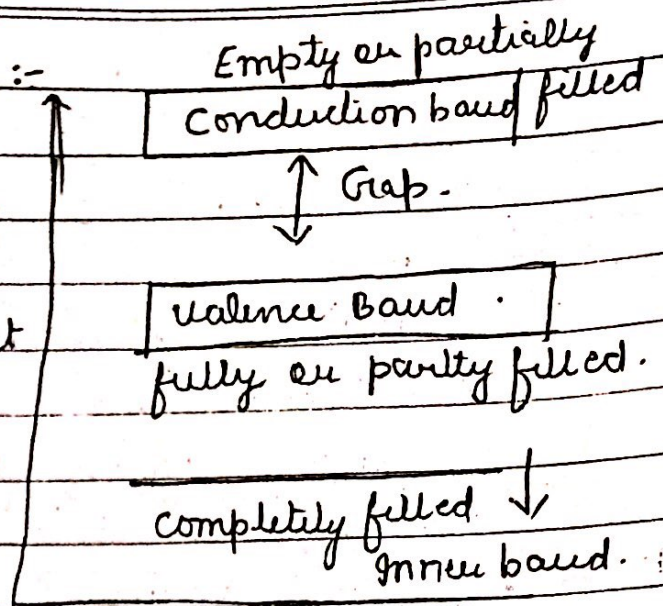 :-
Empty or partially
Conduction band filled
Gap.
Valence Band.
t
fully or partly filled.
completely filled
Inner band.